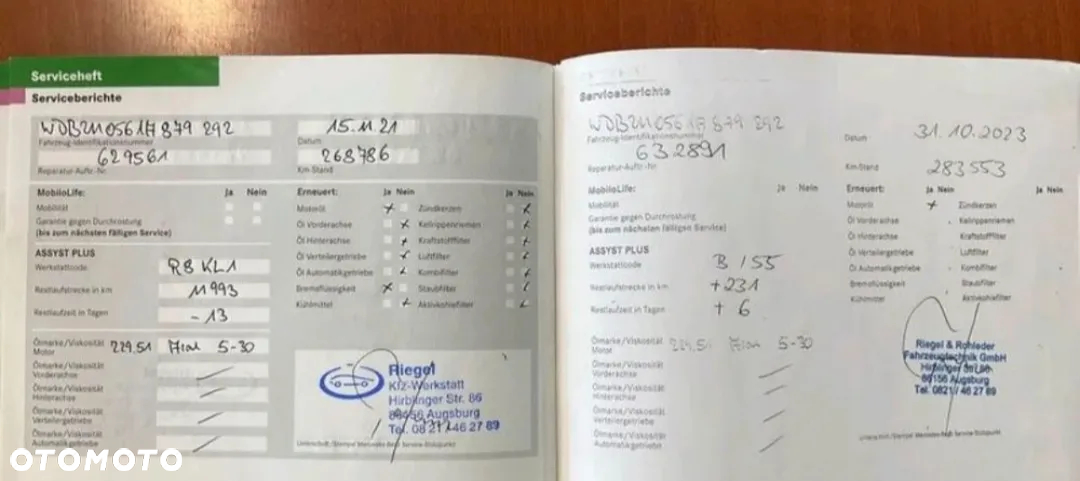 Serviceheft
Serviceberichte
WDB2110561A879 292
Fahrzeug-Identifikationsnummer
15.11.21
Datum
629561
Reparatur-Auftr.-Nr.
268786
Km-Stand
MobiloLife: Ja Nein
Mobilität
Garantie gegen Durchrostung
(bis zum nächsten fälligen Service)
ASSYST PLUS
Werkstattcode R8 KL1
Restlaufstrecke in km 11993
Restlaufzeit in Tagen -13
Ölmarke/Viskosität
Motor 229.51 5-30
Ölmarke/Viskosität
Vorderachse
Ölmarke/Viskosität
Hinterachse
Ölmarke/Viskosität
Verteilergetriebe
Ölmarke/Viskosität
Automatikgetriebe
Erneuert: Ja Nein Ja Nein
Motoröl Zündkerzen
Öl Vorderachse Keilrippenriemen
Öl Hinterachse Kraftstofffilter
Öl Verteilergetriebe Luftfilter
Öl Automatikgetriebe Kombifilter
Bremsflüssigkeit Staubfilter
Kühlmittel Aktivkohlefilter
Riegel
Kfz-Werkstatt
Hirblinger Str. 86
86156 Augsburg
Tel. 08 21/ 46 27 89
OTOMOTO
Serviceberichte
WDB2110561A879 292
Fahrzeug-Identifikationsnummer
Datum 31.10.2023
632891
Reparatur-Auftr.-Nr.
Km-Stand 283553
MobiloLife: Ja Nein
Mobilität
Garantie gegen Durchrostung
(bis zum nächsten fälligen Service)
ASSYST PLUS
Werkstattcode B 155
Restlaufstrecke in km +231
Restlaufzeit in Tagen + 6
Ölmarke/Viskosität
Motor 229.51 5-30
Ölmarke/Viskosität
Vorderachse
Ölmarke/Viskosität
Hinterachse
Ölmarke/Viskosität
Verteilergetriebe
Ölmarke/Viskosität
Automatikgetriebe
Erneuert: Ja Nein Ja Nein
Motoröl Zündkerzen
Öl Vorderachse Keilrippenriemen
Öl Hinterachse Kraftstofffilter
Öl Verteilergetriebe Luftfilter
Öl Automatikgetriebe Kombifilter
Bremsflüssigkeit Staubfilter
Kühlmittel Aktivkohlefilter
Riegel & Rohleder
Fahrzeugtechnik GmbH
Hirblinger Str. 86
86156 Augsburg
Tel. 0821/ 46 27 89